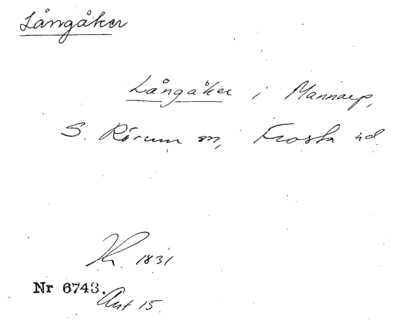 Långåker
Långåker i Mannarp,
S. Rörum sn, Frosta hd
Kr. 1831
Nr 6743.
Ant 15.